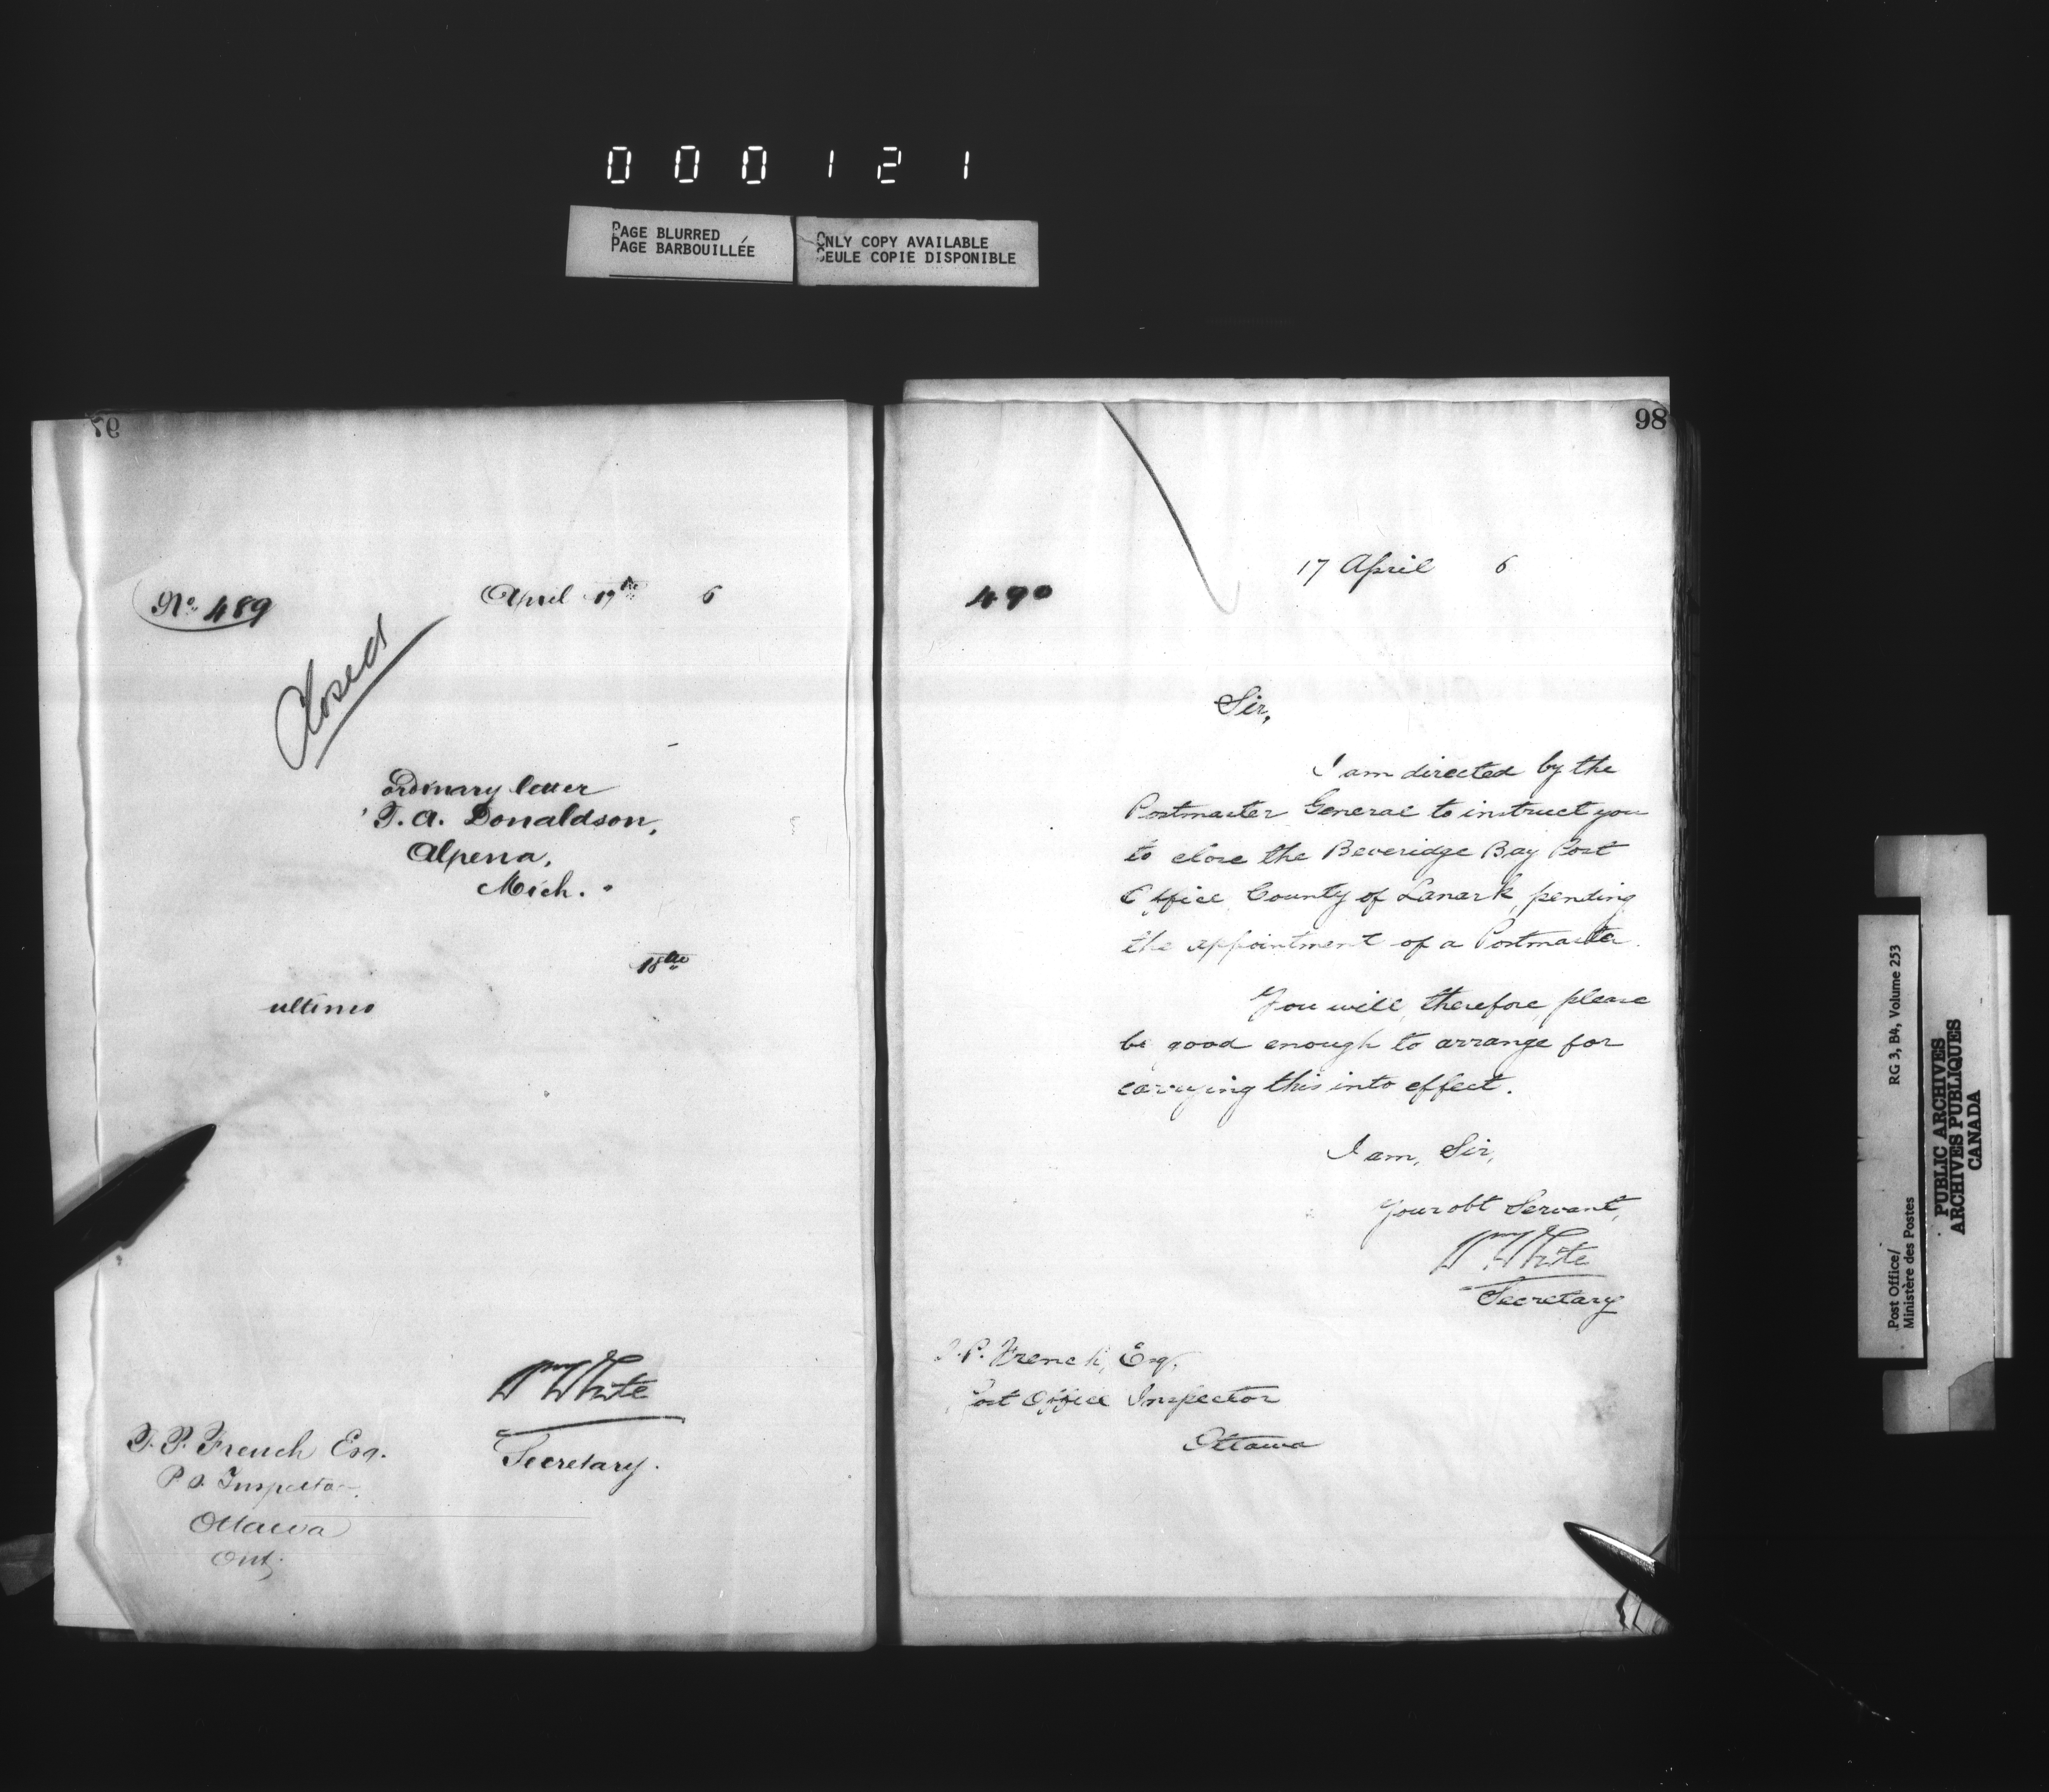 000121
PAGE BLURRED
PAGE BARBOUILLÉE
ONLY COPY AVAILABLE
SEULE COPIE DISPONIBLE
97
No. 489
April 17th 6
Closed
ordinary letter
T. A. Donaldson,
Alpena,
Mich.
18th
ultimo
Wm White
Secretary.
T. P. French Esq.
P O. Inspector
Ottawa
Ont.
98
17 April 6
490
Sir,
I am directed by the
Postmaster General to instruct you
to close the Beveridge Bay Post
Office, County of Lanark, pending
the appointment of a Postmaster.
You will, therefore, please
be good enough to arrange for
carrying this into effect.
I am, Sir,
Your obt Servant,
Wm White
Secretary
T. P. French, Esq.
Post Office Inspector
Ottawa
Post Office/
Ministère des Postes
RG 3, B4, Volume 253
PUBLIC ARCHIVES
ARCHIVES PUBLIQUES
CANADA